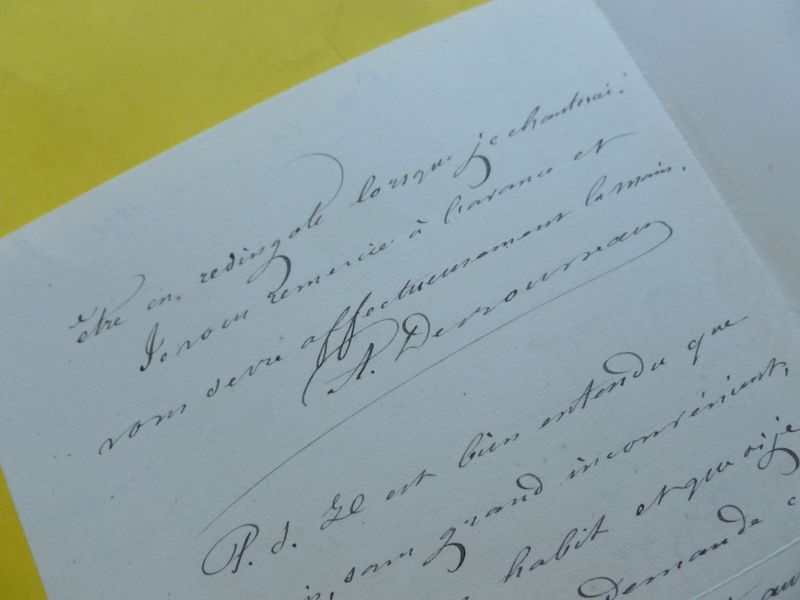 être en redingote lorsque je chanterai.
Je vous remercie à l'avance et
vous serre affectueusement la main.
A. Desrousseaux
P. S. Il est bien entendu que
sans grand inconvénient,
habit et que si je
Demande